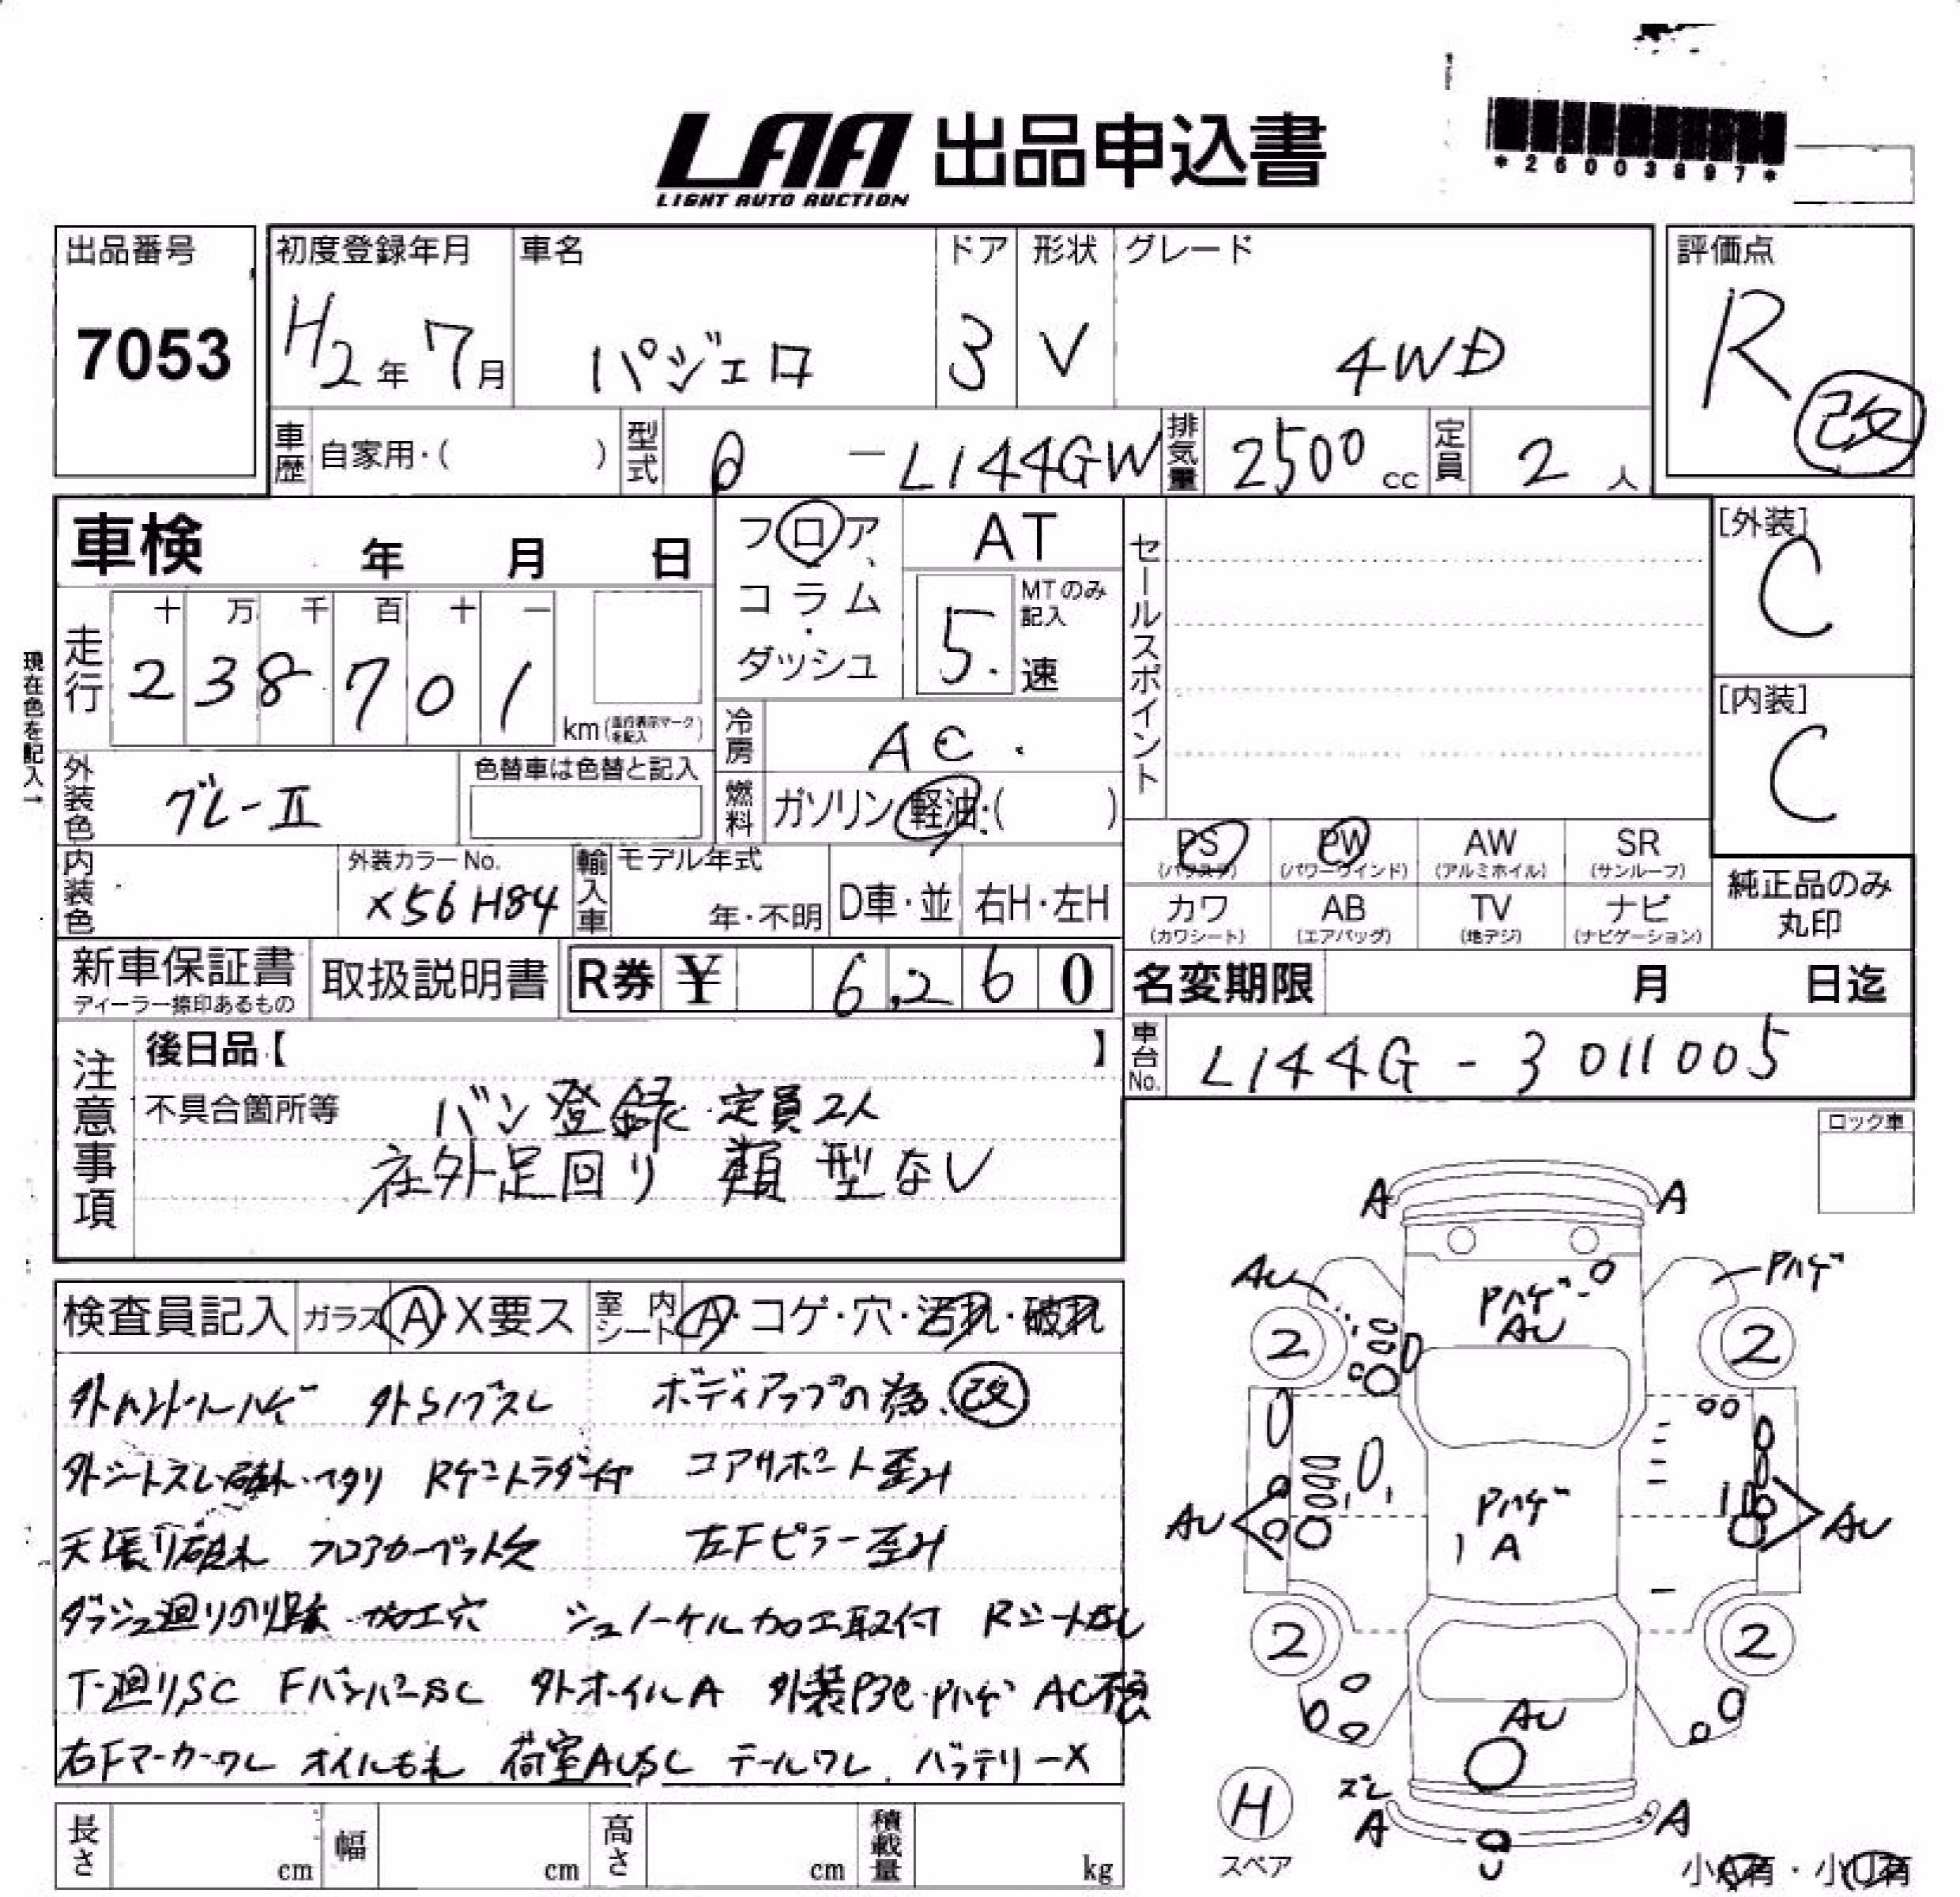 LAA 出品申込書
LIGHT AUTO AUCTION
*26003897*
出品番号
7053
初度登録年月
H2年 7月
車名
パジェロ
ドア
3
形状
V
グレード
4WD
評価点
R 改
車歴 自家用・( )
型式 Q -L144GW
排気量 2500 cc
定員 2 人
車検 年 月 日
フロア、コラム・ダッシュ
AT
MTのみ記入
5. 速
セールスポイント
[外装]
C
[内装]
C
現在色を記入→
走行
十 万 千 百 十 一
2 3 8 7 0 1
km (走行表示マークを記入)
冷房 AC.
燃料 ガソリン・軽油・( )
外装色 グレーII
色替車は色替と記入
PS (パワステ)
PW (パワーウインド)
AW (アルミホイル)
SR (サンルーフ)
カワ (カワシート)
AB (エアバッグ)
TV (地デジ)
ナビ (ナビゲーション)
純正品のみ丸印
内装色
外装カラーNo.
X56 H84
輸入車 モデル年式
年・不明
D車・並
右H・左H
新車保証書
ディーラー捺印あるもの
取扱説明書
R券 ¥ 6,260
名変期限 月 日迄
車台No. L144G - 3011005
注意事項
後日品【 】
不具合箇所等
バン登録 定員2人
社外足回り 類型なし
ロック車
検査員記入 ガラス A・X要ス 室内シート A・コゲ・穴・汚れ・破れ
外ハンドルハゲ 外Sノブスレ ボディアップの為、改
外シートスレ・破れ・ヘタリ Rゲートラダー付 コアサポート歪み
天張り破れ フロアカーペット欠 左Fピラー歪み
ダッシュ廻りのり跡・加工穴 シュノーケル加工取付 Rシートなし
下廻りSC FバンパーSC 外ホイルA 外装Pヨゴレ・Pハゲ
右Fマーカーワレ オイルもれ 荷室AUSC テールワレ バッテリーX
A A
AU Pハゲ
Pハゲ
AU
2 2
AU Pハゲ AU
A
2 2
AU
H
スペア
ズレ
A A
U
小A有・小U有
長さ cm 幅 cm 高さ cm 積載量 kg